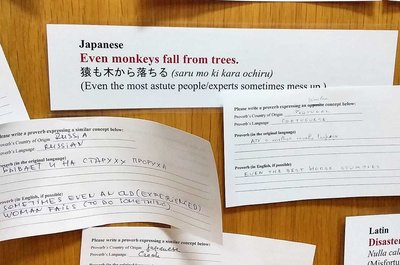 Japanese
Even monkeys fall from trees.
猿も木から落ちる (saru mo ki kara ochiru)
(Even the most astute people/experts sometimes mess up.)
Please write a proverb expressing a similar concept below:
Proverb's Country of Origin RUSSIA
Proverb's Language RUSSIAN
Proverb (in the original language)
БЫВАЕТ И НА СТАРУХУ ПРОРУХА
Proverb (in English, if possible)
SOMETIMES EVEN AN OLD (EXPERIENCED)
WOMAN FAILS (TO DO SOMETHING)
similar
Please write a proverb expressing an opposite concept below:
Proverb's Country of Origin
Proverb's Language PORTUGUESE
Proverb (in the original language)
Proverb (in English, if possible)
EVEN THE BEST HORSE STUMBLES
Please write a proverb expressing a similar concept below:
Proverb's Country of Origin Japanese
Proverb's Language
Latin
Disaster
Nulla cala
(Misfortu